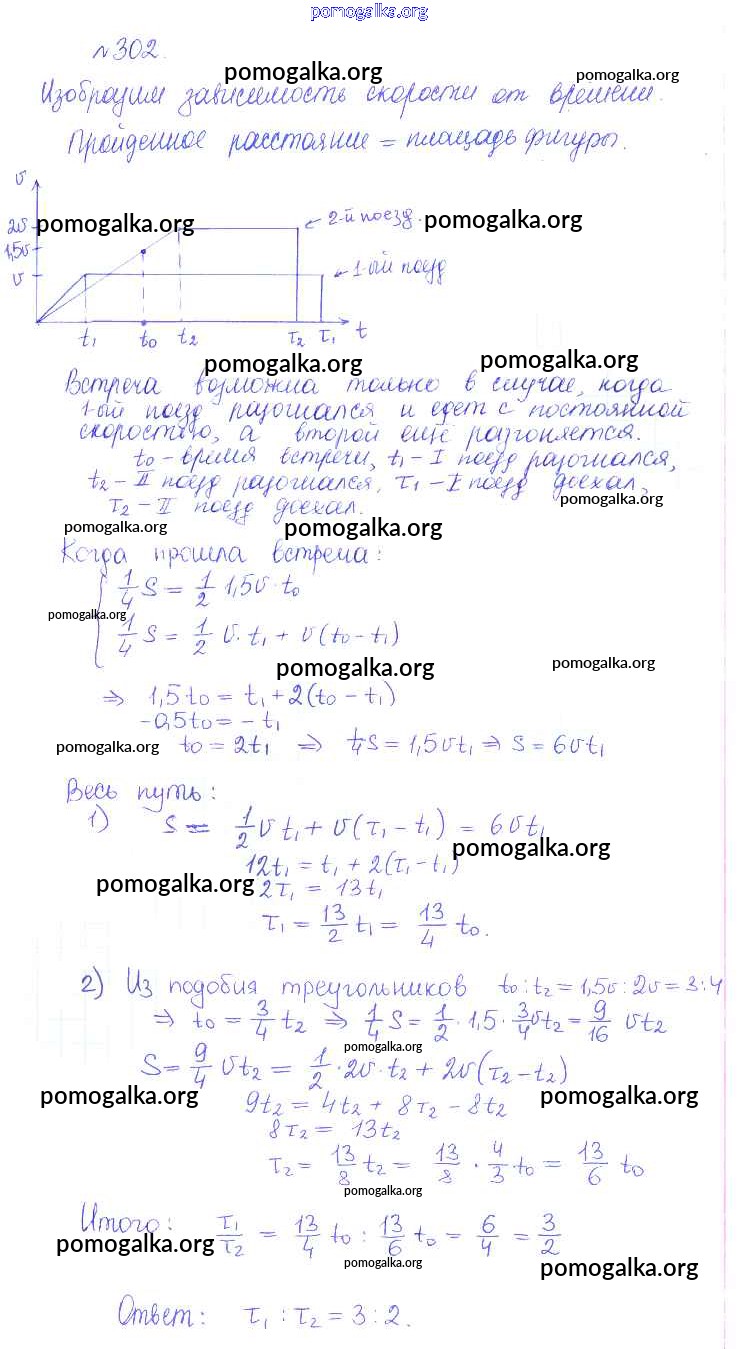 pomogalka.org
№302.
pomogalka.org pomogalka.org
Изобразим зависимость скорости от времени.
Пройденное расстояние = площадь фигуры.
v
2v pomogalka.org 2-й поезд. pomogalka.org
1,5v
v 1-ый поезд
t₁ t₀ t₂ τ₂ τ₁ t
pomogalka.org pomogalka.org
Встреча возможна только в случае, когда
1-ый поезд разогнался и едет с постоянной
скоростью, а второй ещё разгоняется.
t₀ - время встречи, t₁ - I поезд разогнался,
t₂ - II поезд разогнался, τ₁ - I поезд доехал,
pomogalka.org
τ₂ - II поезд доехал.
pomogalka.org pomogalka.org
Когда прошла встреча:
1/4 S = 1/2 1,5v · t₀
pomogalka.org
1/4 S = 1/2 v · t₁ + v(t₀ - t₁)
pomogalka.org pomogalka.org
⇒ 1,5t₀ = t₁ + 2(t₀ - t₁)
-0,5t₀ = - t₁
pomogalka.org t₀ = 2t₁ ⇒ 1/4 S = 1,5vt₁ ⇒ S = 6vt₁
Весь путь:
1) S = 1/2 vt₁ + v(τ₁ - t₁) = 6vt₁
pomogalka.org
12t₁ = t₁ + 2(τ₁ - t₁)
pomogalka.org 2τ₁ = 13t₁
τ₁ = 13/2 t₁ = 13/4 t₀.
2) Из подобия треугольников t₀ : t₂ = 1,5v : 2v = 3 : 4
⇒ t₀ = 3/4 t₂ ⇒ 1/4 S = 1/2 · 1,5 · 3/4 vt₂ = 9/16 vt₂
pomogalka.org
S = 9/4 vt₂ = 1/2 · 2v · t₂ + 2v(τ₂ - t₂)
pomogalka.org pomogalka.org
9t₂ = 4t₂ + 8τ₂ - 8t₂
8τ₂ = 13t₂
τ₂ = 13/8 t₂ = 13/8 · 4/3 t₀ = 13/6 t₀
pomogalka.org
Итого: τ₁/τ₂ = 13/4 t₀ : 13/6 t₀ = 6/4 = 3/2
pomogalka.org pomogalka.org pomogalka.org
Ответ: τ₁ : τ₂ = 3 : 2.